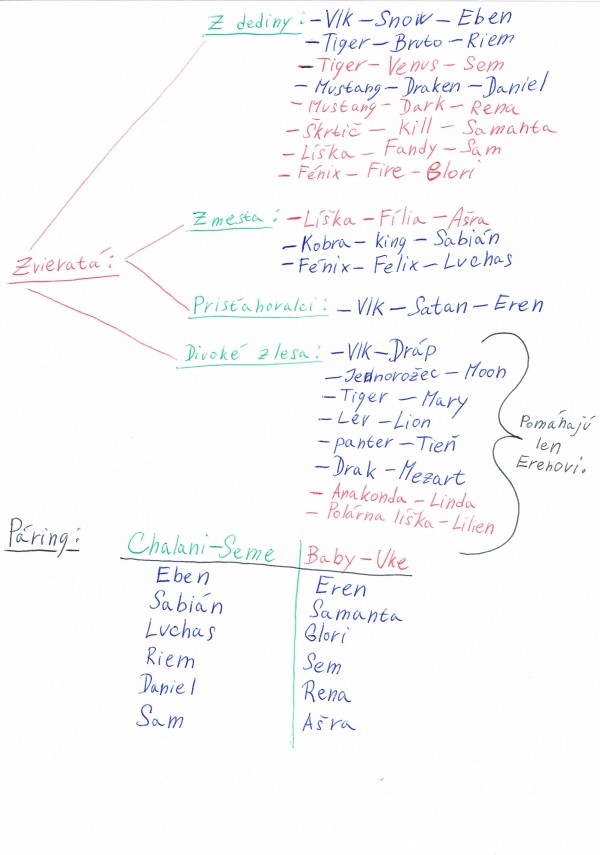 Z dediny: - Vlk - Snow - Eben
- Tiger - Bruto - Riem
- Tiger - Venus - Sem
- Mustang - Draken - Daniel
- Mustang - Dark - Rena
- Škrtič - Kill - Samanta
- Líška - Fandy - Sam
- Fénix - Fire - Glori
Z mesta: - Líška - Fília - Ašra
- Kobra - king - Sabián
- Fénix - Félix - Luchas
Zvieratá:
Prisťahovalci: - Vlk - Satan - Eren
Divoké z lesa: - Vlk - Dráp
- Jednorožec - Moon
- Tiger - Mary
- Lev - Lion
- panter - Tieň
- Drak - Mezart
- Anakonda - Linda
- Polárna líška - Lilien
Pomáhajú
len
Erenovi.
Páring:
Chalani - Seme Baby - Uke
Eben Eren
Sabián Samanta
Luchas Glori
Riem Sem
Daniel Rena
Sam Ašra